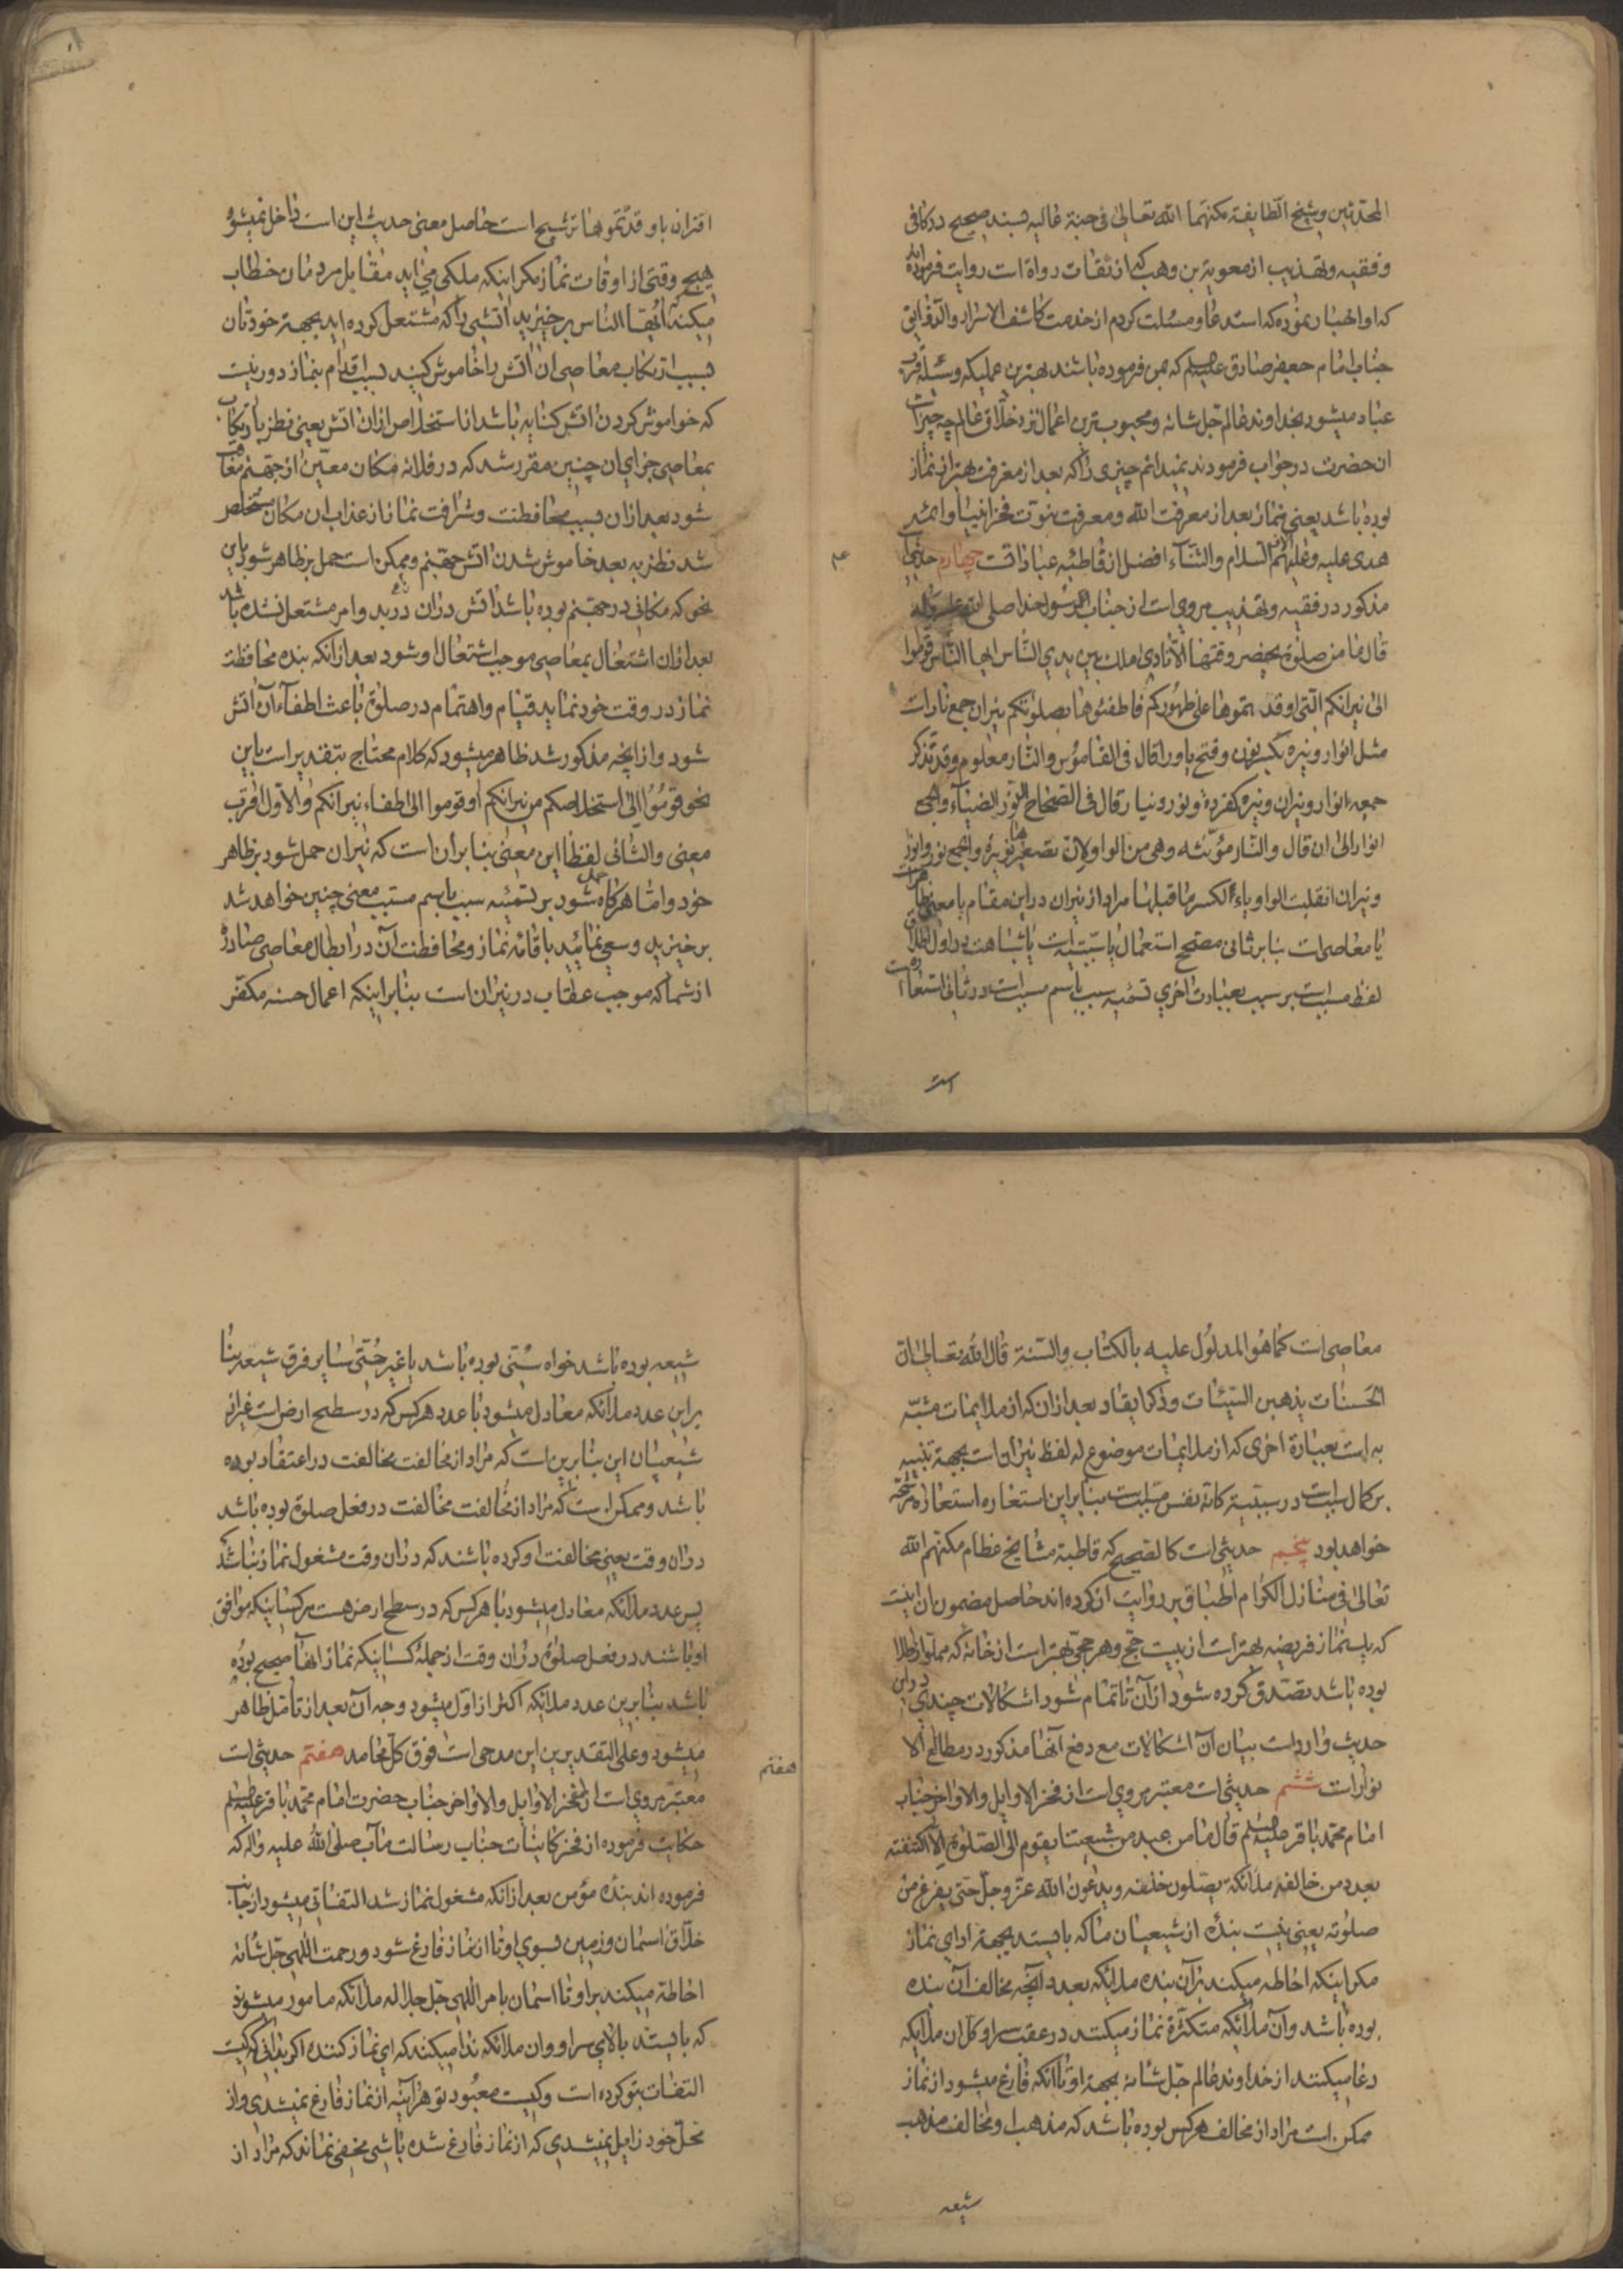 المحدثین و شیخ الطایفة مکنهما الله تعالی فی جنة عالیه بسند صحیح در کافی
و فقیه و تهذیب از معویة بن وهب که از ثقات رواة است روایت فرموده اند
که او اظهار نموده که استدعا و مسئلت کردم از خدمت کاشف الاسرار والدقایق
جناب امام جعفر صادق علیه السلم که بمن فرموده باشند بهترین عملیکه وسیله قرب
عباد میشود بخداوند عالم جل شانه و محبوب ترین اعمال نزد خلاق عالم چه چیز است
ان حضرت در جواب فرمودند نمیدانم چیزی را که بعد از معرفت بهتر از نماز
بوده باشد یعنی نماز بعد از معرفت الله و معرفت نبوت فخر انبیا و ائمه
هدی علیه و علیهم آلاف السلام والثناء افضل از قاطبه عبادات است چهارم حدیثی
مذکور در فقیه و تهذیب مروی است از جناب رسول خدا صلی الله علیه و آله
قال ما من صلوة یحضر وقتها الا نادی ملک بین یدی الناس ایها الناس قوموا
الی نیرانکم التی اوقدتموها علی ظهورکم فاطفئوها بصلوتکم نیران جمع نار است
مثل انوار و نیره بکسر نون و فتح یا و را قال فی القاموس والنار معلوم وقد تذکر
جمعه انوار و نیران و نیره کقردة و نور و نیار قال فی الصحاح النور الضیاء والجمع
انوار الی ان قال والنار مؤنثه وهی من الواو لان تصغیرها نویرة والجمع نور وانور
و نیران انقلبت الواو یاء لکسر ما قبلها مراد از نیران در این مقام یا معنی ظاهر است
یا معاصی است بنابر ثانی مصحح استعمال یا سببیت است یا شباهت در اول اطلاق
لفظ مسبب است بر سبب بعبارت اخری تسمیه سبب باسم مسبب است و در ثانی استعاره است
است
۴
اقتران با و قدتموها ترشیح است حاصل معنی حدیث این است داخل نمیشود
هیچ وقتی از اوقات نماز مکر اینکه ملکی می اید مقابل مردمان خطاب
میکند ایها الناس برخیزید اتشی را که مشتعل کرده اید بجهة خودتان
بسبب ارتکاب معاصی ان اتش را خاموش کنید بسبب اقدام بنماز دور نیست
که خواموش کردن اتش کنایه باشد از استخلاص از ان اتش یعنی نظر بارتکاب
بمعاصی جزای ان چنین مقرر شد که در فلانه مکان معین از جهنم معاقب
شود بعد از ان بسبب محافظت و شرافت نماز از عذاب ان مکان مستخلص
شد نظر به بعد خاموش شدن اتش جهنم و ممکن است حمل بر ظاهر شود باین
نحو که مکانی در جهنم بوده باشد اتش در ان در بدو امر مشتعل نشده باشد
بعد از ان اشتغال بمعاصی موجب اشتعال او شود بعد از انکه بنده محافظت
نماز در وقت خود نماید قیام و اهتمام در صلوة باعث اطفاء آن اتش
شود و از انچه مذکور شد ظاهر میشود که کلام محتاج بتقدیر است باین
نحو قوموا الی استخلاصکم من نیرانکم او قوموا الی اطفاء نیرانکم والاول اقرب
معنی والثانی لفظا این معنی بنابر ان است که نیران حمل شود بر ظاهر
خود و اما هر کاه حمل شود بر تسمیه سبب باسم مسبب معنی چنین خواهد شد
برخیزید و سعی نمائید باقامه نماز و محافظت آن در ابطال معاصی صادره
از شما که موجب عقاب در نیران است بنابر اینکه اعمال حسنه مکفر
معاصی است کما هو المدلول علیه بالکتاب والسنة قال الله تعالی ان
الحسنات یذهبن السیئات و ذکر ایقاد بعد از ان که از ملایمات مشبه
به است بعبارة اخری که از ملایمات موضوع له لفظ نیران است بجهة تنبیه
بر کمال سببیت در سببیة کانه نفس مسبب است بنابراین استعاره استعاره مرشحه
خواهد بود پنجم حدیثی است کالصحیح که قاطبة مشایخ عظام مکنهم الله
تعالی فی منازل الکرام اطباق بر روایت ان کرده اند حاصل مضمون ان اینست
که یک نماز فریضه بهتر است از بیست حج و هر حجی بهتر است از خانه که مملو از طلا
بوده باشد تصدق کرده شود از آن تا تمام شود اشکالات چندی در این
حدیث وارد است بیان آن اشکالات مع دفع آنها مذکور در مطالع الا
نوار است ششم حدیثی است معتبر مروی است از فخر الاوایل والاواخر جناب
امام محمد باقر علیه السلم قال ما من عبد من شیعتنا یقوم الی الصلوة الا اکتنفته
بعدد من خالفه ملائکة یصلون خلفه ویدعون الله عز وجل حتی یفرغ من
صلوته یعنی نیست بنده از شیعیان ما که بایستد بجهة ادای نماز
مکر اینکه احاطه میکند بر آن بنده ملائکه بعدد آنچه مخالف آن بنده
بوده باشد و آن ملائکه متکثرة نماز میکنند در عقب سر او کل ان ملایکه
دعا میکنند از خداوند عالم جل شانه بجهة او تا انکه فارغ میشود از نماز
ممکن است مراد از مخالف هر کس بوده باشد که مذهب او مخالف مذهب
شیعه
شیعه بوده باشد خواه سنی بوده باشد یا غیر حتی سایر فرق شیعه بنا
براین عدد ملائکه معادل میشود با عدد هر کس که در سطح ارض است غیر از
شیعیان این بنابرین است که مراد از مخالفت مخالفت در اعتقاد بوده
باشد و ممکن است که مراد از مخالفت مخالفت در فعل صلوة بوده باشد
در ان وقت یعنی مخالفت او کرده باشند که در ان وقت مشغول نماز نباشند
پس عدد ملائکه معادل میشود با هر کس که در سطح ارض هست مر کسانیکه موافق
او باشند در فعل صلوة در ان وقت از جمله کسانیکه نماز انها صحیح بوده
باشد بنابرین عدد ملائکه اکثر از اول میشود وجه آن بعد از تامل ظاهر
میشود و علی التقدیرین این مدحی است فوق کل محامد هفتم حدیثی است
هفتم
معتبر مروی است از فخر الاوایل والاواخر جناب حضرت امام محمد باقر علیه السلم
حکایت فرموده از فخر کاینات جناب رسالت مآب صلی الله علیه واله که
فرموده اند بنده مؤمن بعد از انکه مشغول نماز شد التفاتی میشود از جانب
خلاق اسمان و زمین بسوی او تا از نماز فارغ شود و رحمت الهی جل شانه
احاطه میکند بر او تا اسمان بامر الهی جل جلاله ملائکه مامور میشوند
که بایستند بالای سر او وان ملائکه ندا میکنند که ای نماز کننده اکر بدانی که کیست
التفات بتو کرده است و کیست معبود تو هر آینه از نماز فارغ نمیشدی و از
محل خود زایل نمیشدی که از نماز فارغ شده باشی مخفی نماند که مراد از